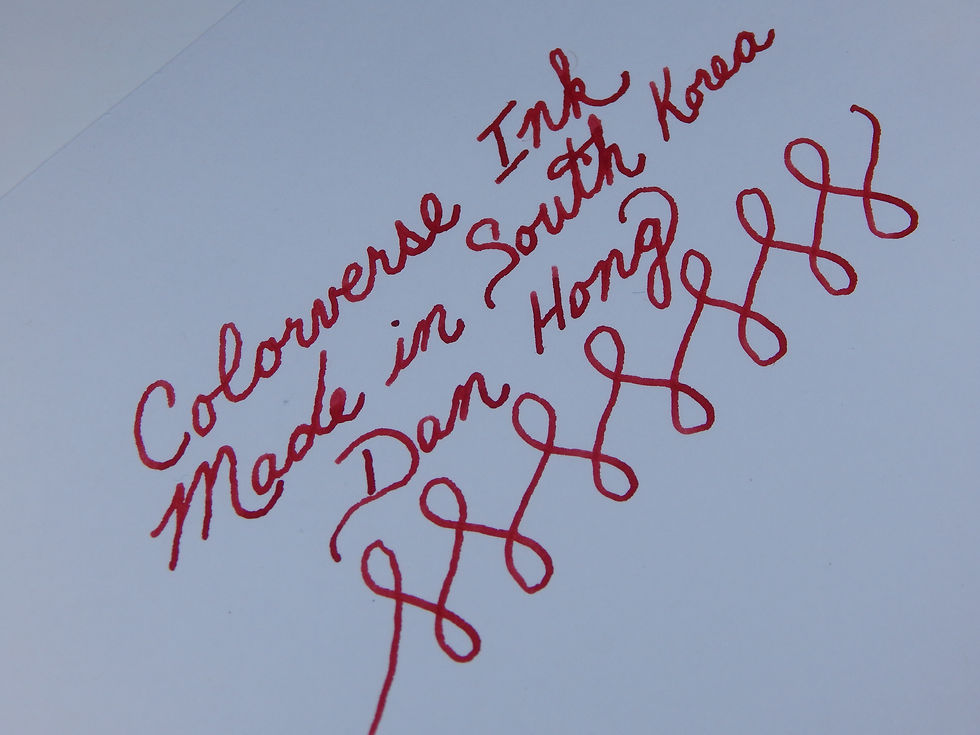 Colorverse Ink
Made in South Korea
Dan Hong